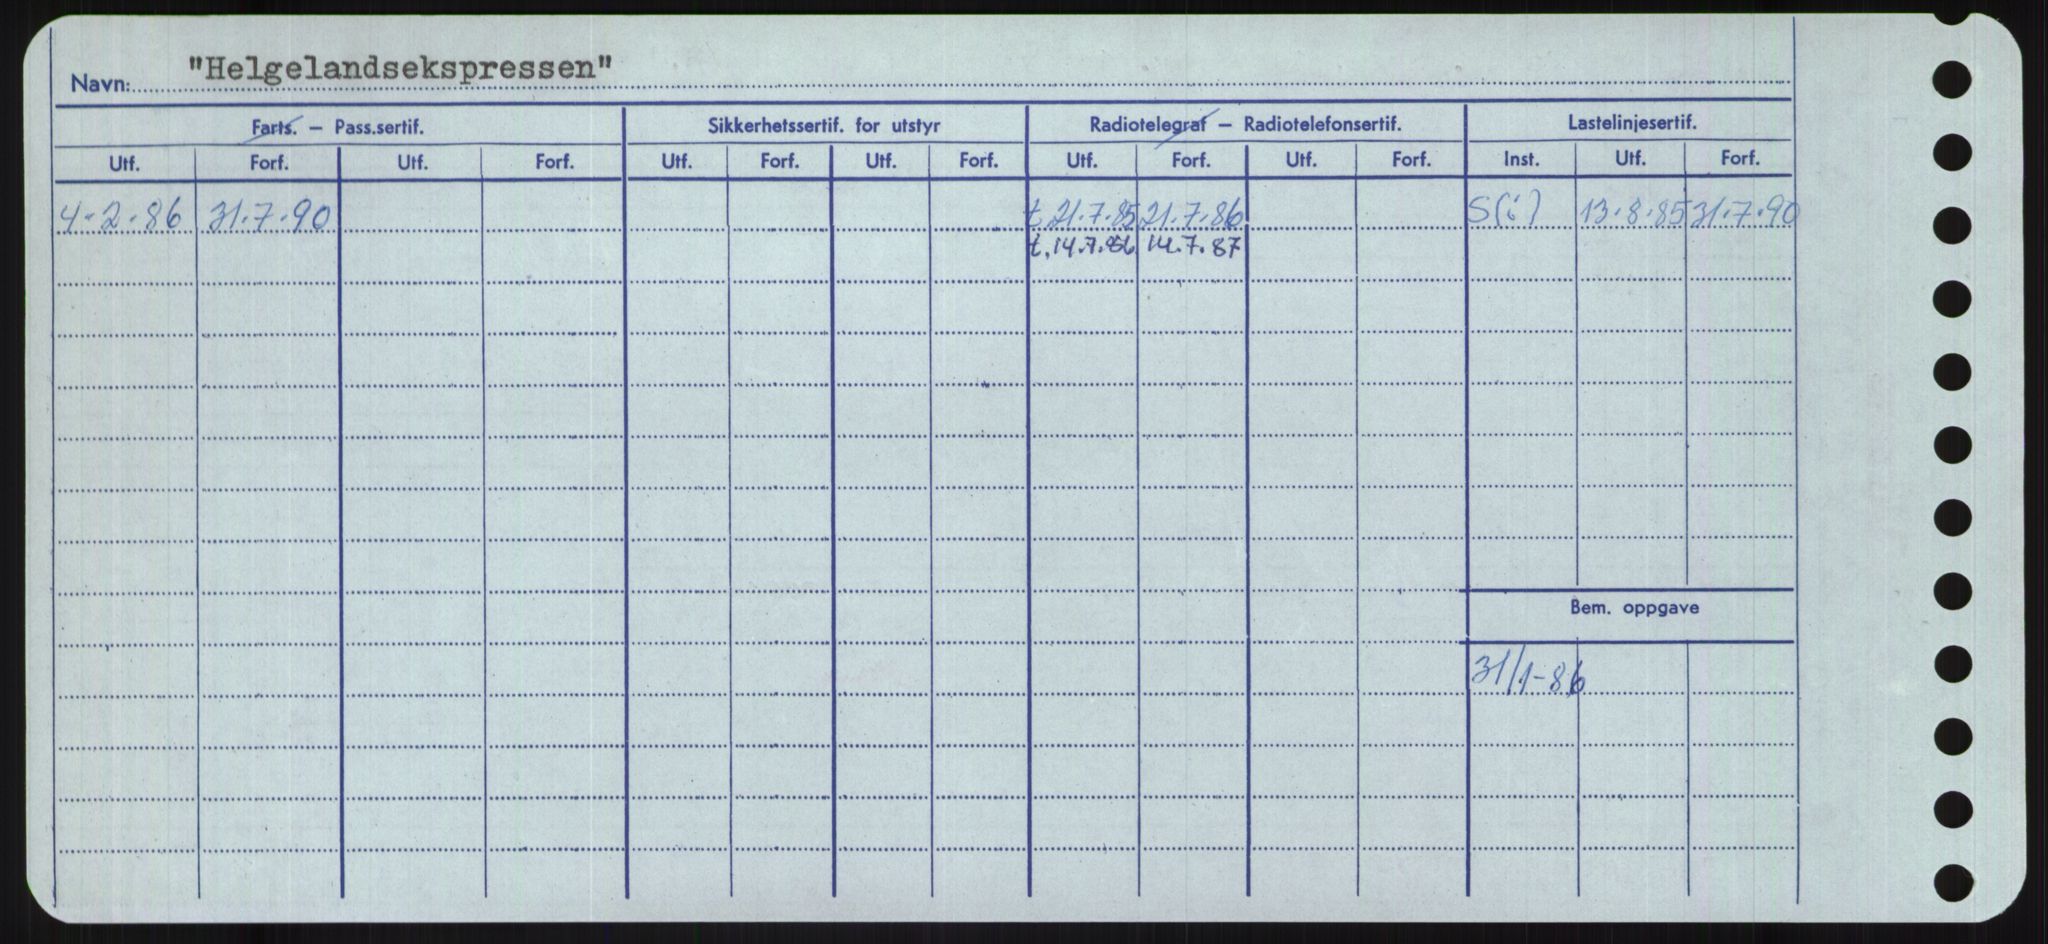 Navn: "Helgelandsekspressen"
Farts. – Pass.sertif. Sikkerhetssertif. for utstyr Radiotelegraf – Radiotelefonsertif. Lastelinjesertif.
Utf. Forf. Utf. Forf. Utf. Forf. Utf. Forf. Utf. Forf. Utf. Forf. Inst. Utf. Forf.
4-2-86 31.7.90 t.21.7.85 21.7.86 S(i) 13.8.85 31.7.90
t.14.7.86 14.7.87
Bem. oppgave
31/1-86